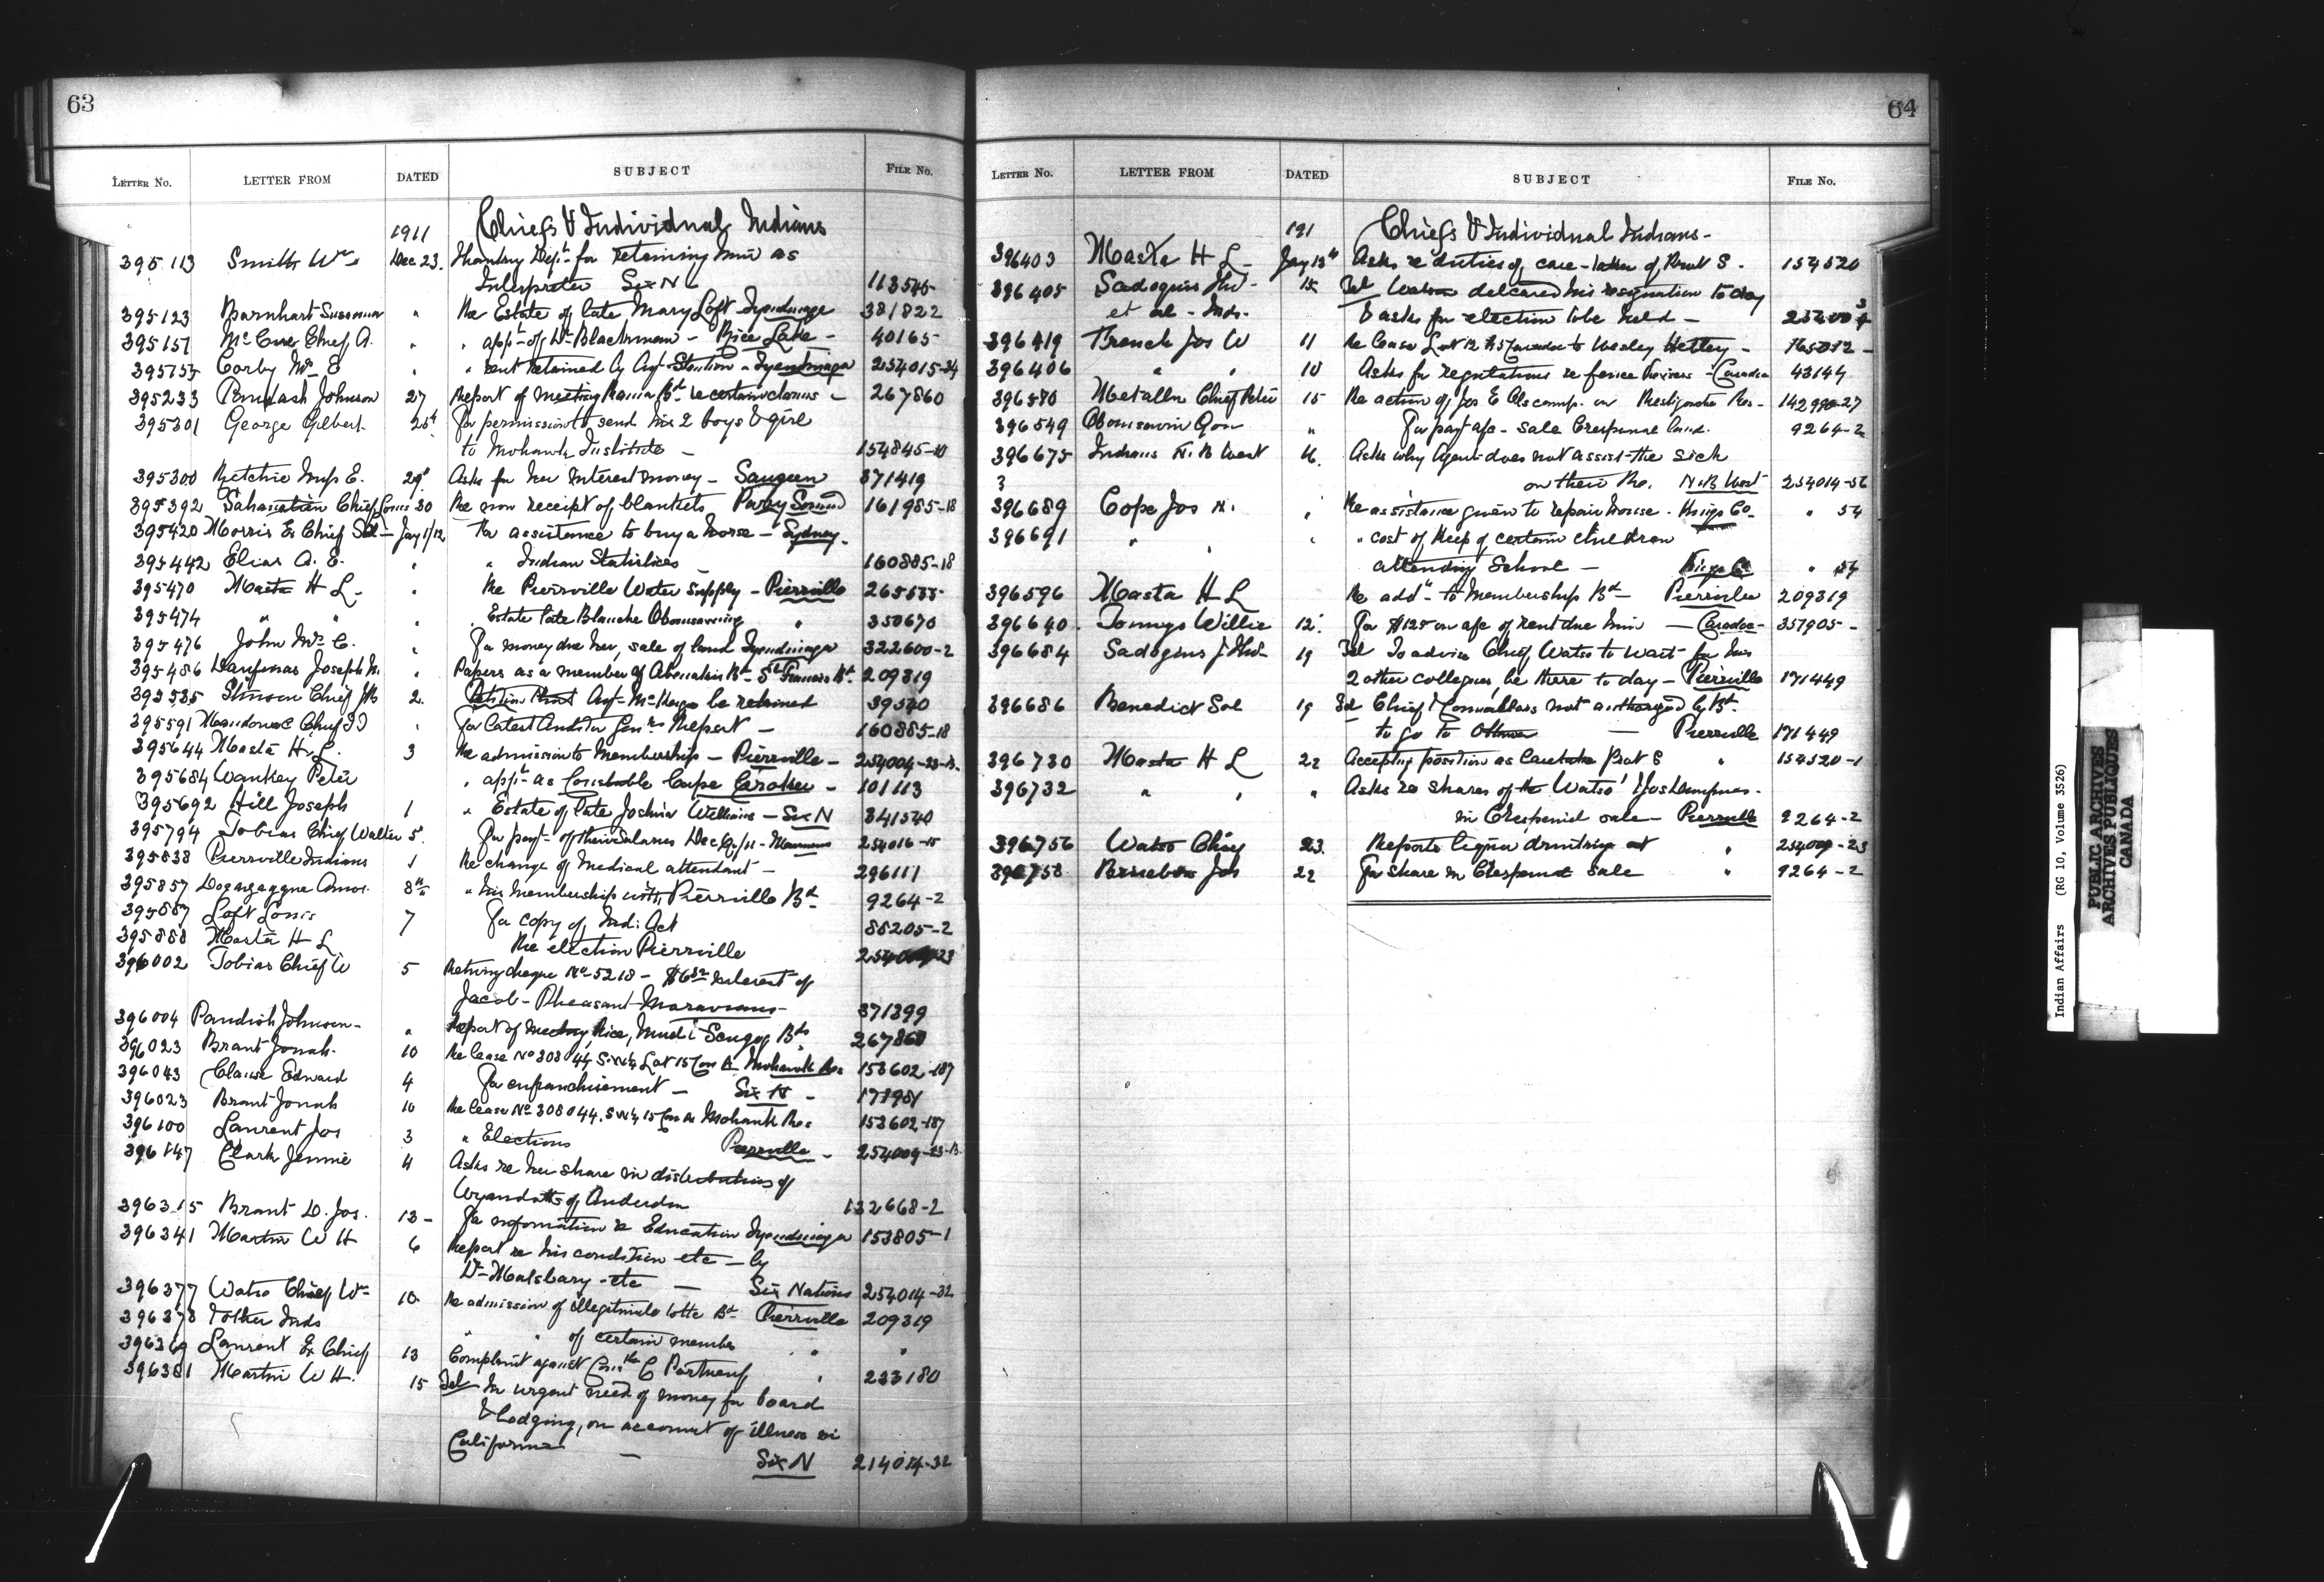 63
LETTER NO. LETTER FROM DATED SUBJECT FILE NO.
1911 Chiefs & Individual Indians
395113 Smith Wm Dec 23. Thanking Dept for retaining him as
Interpreter Six N 113545
395123 Barnhart Susannah " Re Estate of late Mary Loft Tyendinaga 381822
395151 McCue Chief A. " " appt of Dr Blackman - Rice Lake - 40165
Corby Mrs E " " rent retained by Agt Stainton - Tyendinaga 254015-34
395233 Paudash Johnson 27 Report of meeting Bd re certain claims - 267860
395301 George Gilbert 25th For permission to send his 2 boys & girl
to Mohawk Institute - 154845-10
395300 Ritchie Mrs E. 29th Asks for her interest money - Saugeen 371419
395392 Sahanatien Chief Louis 30 Re non receipt of blankets Parry Sound 161985-18
395420 Morris Ex Chief Sol - Jany 1/12 Re assistance to buy a horse - Sydney.
395442 Elias A. E. " " Indian Statistics - 160885-18
395470 Masta H L - " Re Pierrville Water supply - Pierrville
395474 " " " Estate late Blanche Obomsawing " 350670
395476 John Mrs C. " For money due her, sale of land Tyendinaga 322600-2
395486 Joseph " Papers as a member of Abenakis Bd - St Francis Bd. 209319
395535 Stinson Chief 2. Petition that Agt be retained 39570
395591 Chief " For latest Auditor Genrs Report - 160885-18
395644 Masta H. L. 3 Re admission to membership - Pierrville - 254004-23-B.
395684 Wankey Peter " appt as Constable Cape Croker - 101113
395692 Hill Joseph 1 " Estate of late Joshua Williams - Six N 341540
395794 Tobias Chief Walter 5. For payt of their salaries Dec Qr/11 - 254016-15
395838 Pierrville Indians 1 Re change of Medical attendant - 296111
395857 8th " his membership with Pierrville Bd 9264-2
395887 Loft Louis 7 For copy of Ind: Act 88205-2
395888 Masta H L Re election Pierrville
396002 Tobias Chief W 5 Returng cheque No 5218 - interest of
Jacob - Pheasant - Moravians - 371399
396004 Paudish Johnson - " Report of meeting Rice, Mud & Scugog Bds 267860
396023 Brant Jonah. 10 Re lease No 308044 Lot 15 Con A Mohawk Res 153602-187
396043 Clause Edward 4 For enfranchisement - Six N -
396023 Brant Jonah 10 Re lease No 308044. 15 Con A Mohawk Res 153602-187
396100 Laurent Jos 3 " Elections Pierrville - 254009-23-B
396147 Clark Jennie 4 Asks re her share in distribution of
Wyandotts of Anderdon 132668-2
396315 Brant D. Jos. 13 - For information re Education Tyendinaga 153805-1
396341 Martin W H 6 Report re his condition etc - by
Dr - Malsbary - etc - Six Nations 254014-32
396377 Watso Chief Wm 10. Re admission of illegitimate to the Bd Pierrville 209319
396378 & other Inds " " of certain member " "
396369 Laurent Ex Chief 13 Complaint against " 233180
396381 Martin W H. 15 Tel In urgent need of money for board
& lodging, on account of illness in
California - Six N 214014-32
64
LETTER NO. LETTER FROM DATED SUBJECT FILE NO.
191 Chiefs & Individual Indians -
396403 Masta H L - Jany 13th Asks re duties of care-taker of Prot S. 154520
396405 Sadoques 15 Tel Watso delcared his resignation to day
et al - Inds. & asks for election to be held -
396419 French Jos W 11 Re lease Lot 12 Caradoc to Wesley -
396406 " " 10 Asks for regulations re fence - Caradoc 43144
396570 Metallic Chief Peter 15 Re action of Jos E on Restigouche Res - 142990-27
396549 " For payt a/c - sale Crespieul land. 9264-2
396675 Indians N. B West 16. Asks why Agent does not assist the sick
3 on their Res. N.B West 254014-56
396689 Cope Jos N. " Re assistance given to repair house. Kings Co - " 54
396691 " " " " cost of keep of certain children
attending School - Kings Co " 54
396596 Masta H L Re addn to membership Bd - Pierrville 209319
396640. Tommys Willie 12. For $125 on a/c of rent due him - Caradoc - 357905 -
396684 Sadoques J 19 Tel To advise Chief Watso to wait for his
2 other collegues, be there to day - Pierrville 171449
396686 Benedict Sol 19 Tel Chief & Councillors not authorized by Bd
to go to Ottawa - Pierrville 171449
396730 Masta H L 22 Accepting position as Caretaker Prot S " 154520-1
396732 " " " Asks re shares of the Watso' & Jos
in Crespieul sale - Pierrville 9264-2
396756 Watso Chief 23. Reports liquor drinking at " 254009-23
396758 Jos 22 For share in Crespieul sale " 9264-2
Indian Affairs (RG 10, Volume 3526)
PUBLIC ARCHIVES
ARCHIVES PUBLIQUES
CANADA